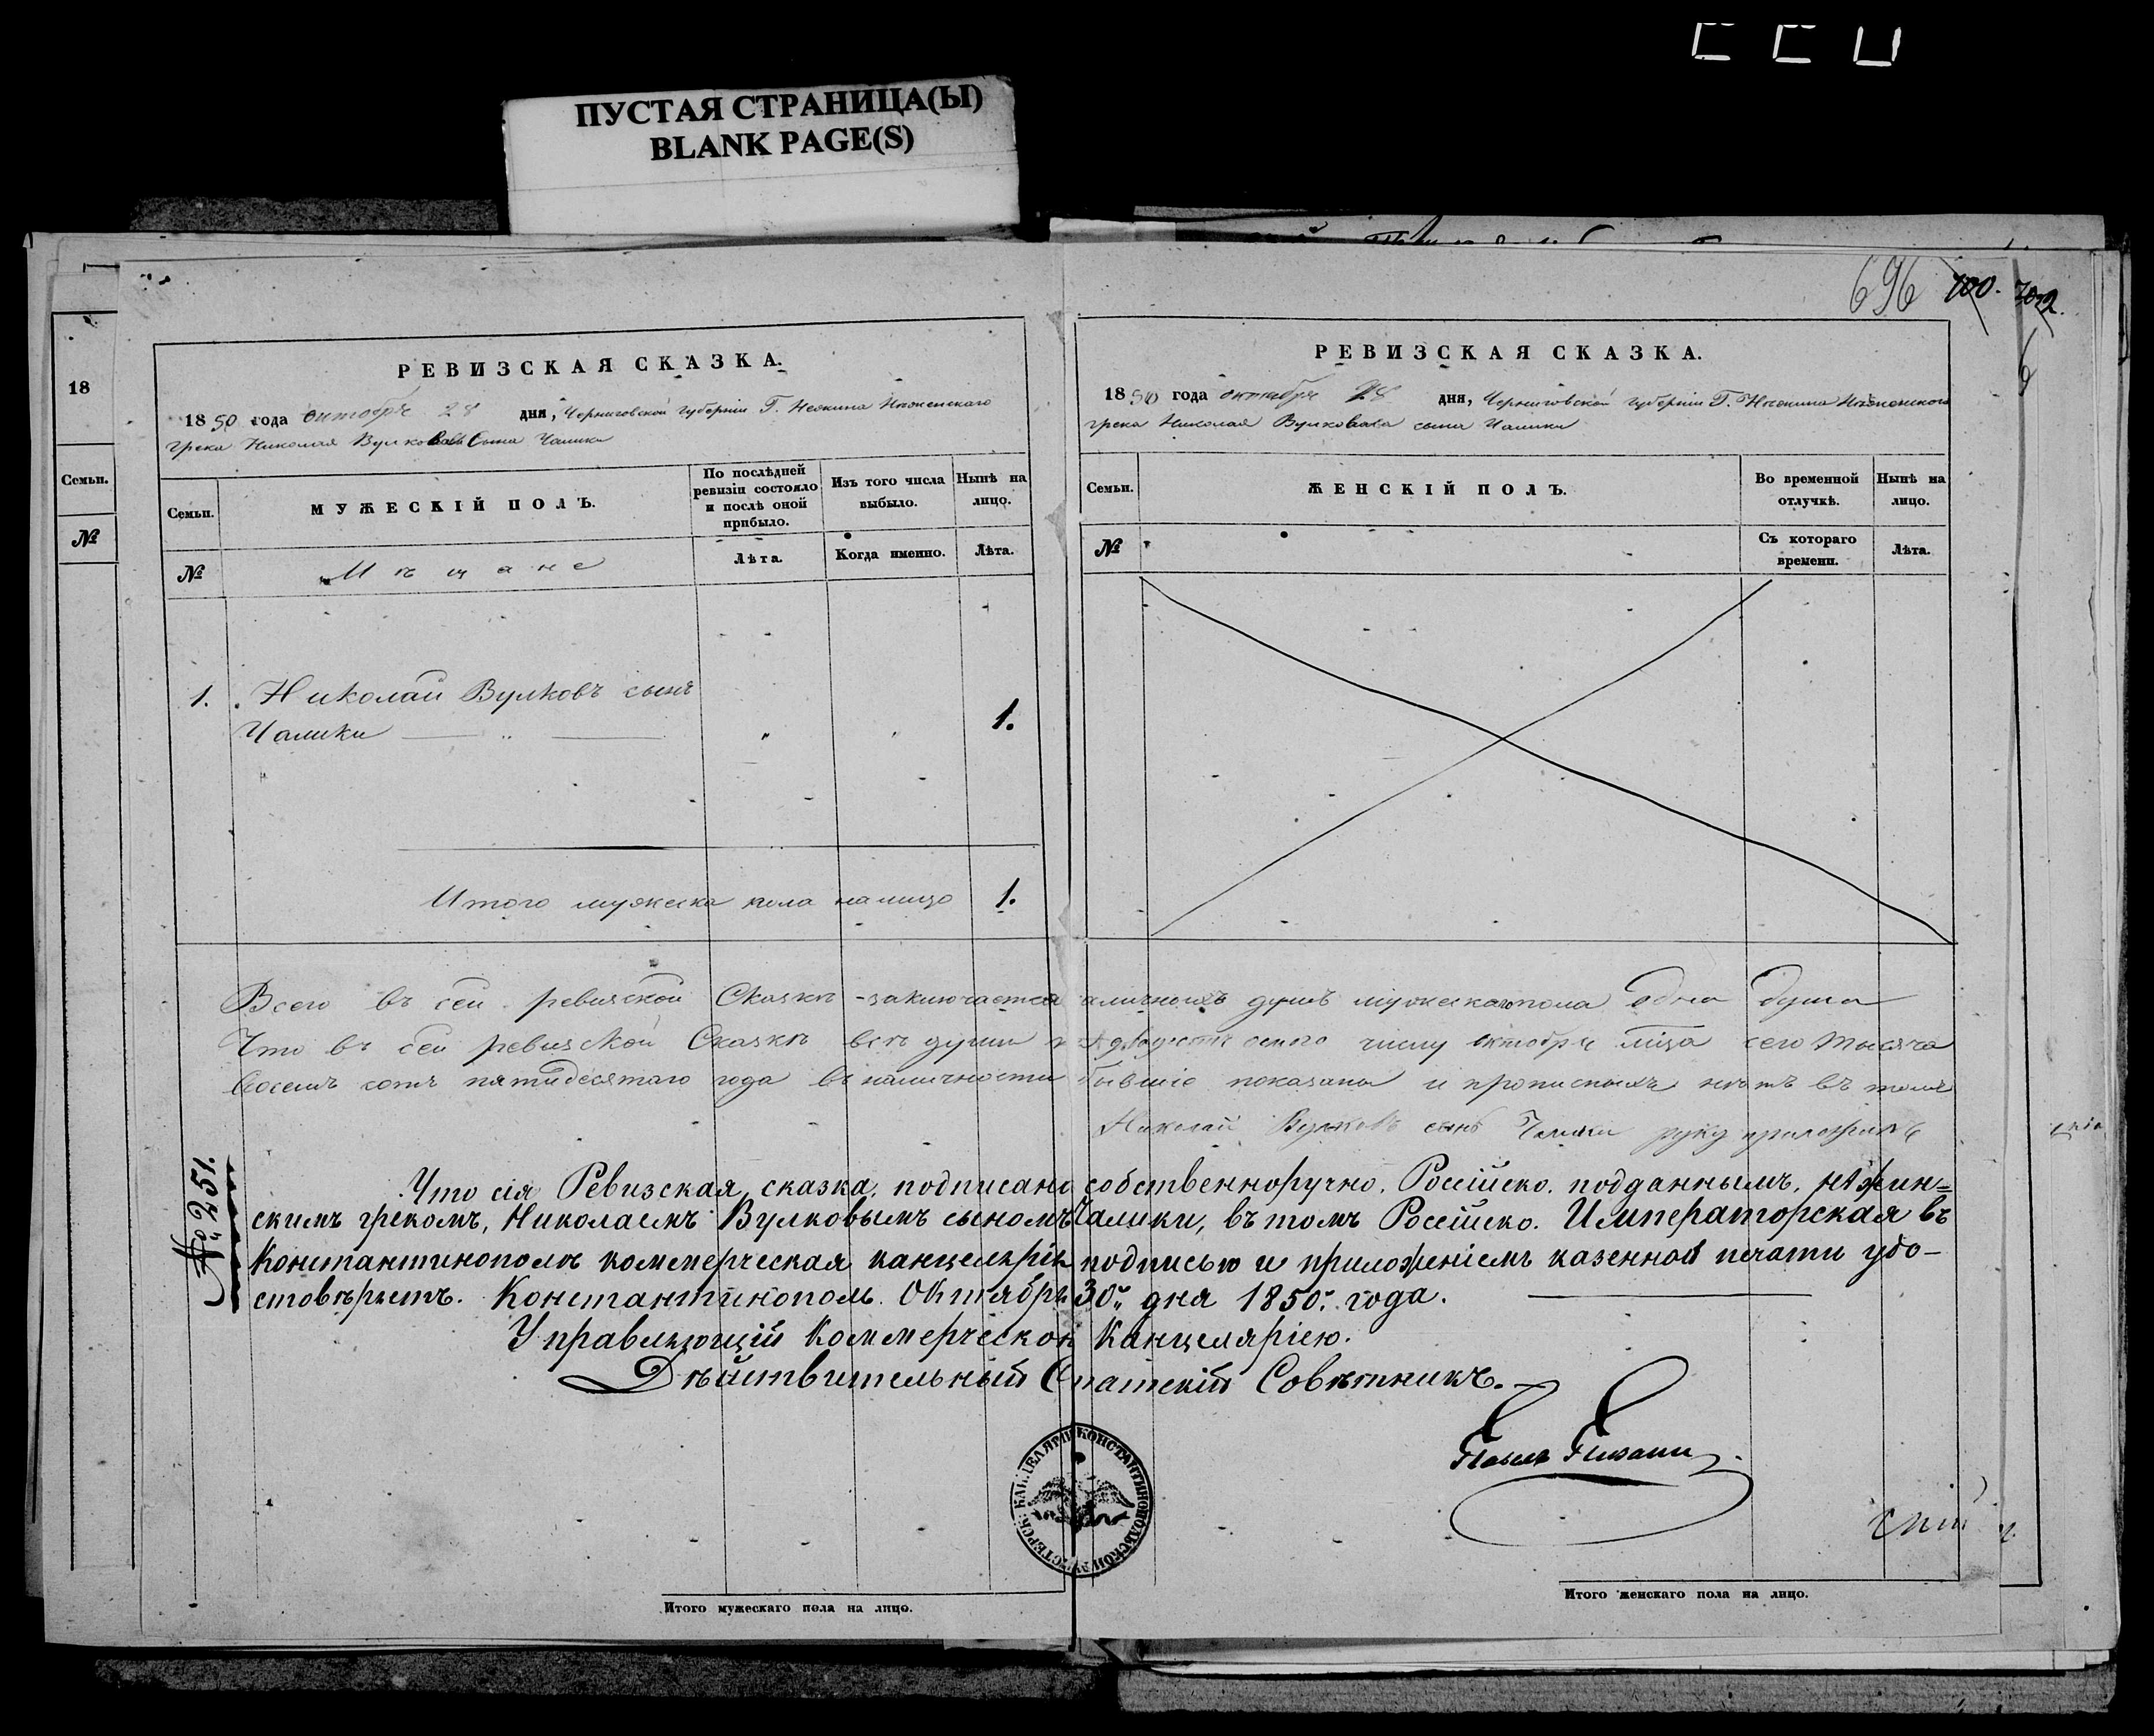 ПУСТАЯ СТРАНИЦА(Ы)
BLANK PAGE(S)
696 700. 702.
18
Семьи.
№
РЕВИЗСКАЯ СКАЗКА.
1850 года октября 28 дня, Черниговской губерніи Г. Нежина Нѣженскаго
грека Николая Вулкова Сына Чалики
Семьи.
МУЖЕСКІЙ ПОЛЪ.
По послѣдней ревизіи состояло и послѣ оной прибыло.
Изъ того числа выбыло.
Нынѣ на лицо.
№
Мѣщане
Лѣта.
Когда именно.
Лѣта.
1. Николай Вулковъ сынъ
Чалики 1.
Итого мужеска пола налицо 1.
РЕВИЗСКАЯ СКАЗКА.
1850 года октября 28 дня, Черниговской губерніи Г. Нѣжина Нѣженскаго
грека Николая Вулкова сына Чалики
Семьи.
ЖЕНСКІЙ ПОЛЪ.
Во временной отлучкѣ.
Нынѣ на лицо.
№
Съ котораго времени.
Лѣта.
Всего въ сей ревизской Сказкѣ заключается наличныхъ душъ мужескаго пола одна душа
Что въ сей ревизской Сказкѣ всѣ души двадесять осмого числу октября мѣсяца сего тысяча
восемь сотъ пятидесятаго года въ наличности бывшіе показаны и прописныхъ нѣтъ въ томъ
Николай Вулковъ сынъ Чалики руку приложилъ
№ 251.
Что сія Ревизская сказка подписана собственноручно Россійско подданнымъ, нѣжин=
скимъ грекомъ, Николаемъ Вулковымъ сыномъ Чалики, въ томъ Россійско Императорская въ
Константинополѣ коммерческая канцелярія подписью и приложеніемъ казенной печати удо-
стовѣряетъ. Константинополь. Октября 30го дня 1850го года.
Управляющій Коммерческою Канцеляріею.
Дѣйствительный Статскій Совѣтникъ.
Павелъ Пизани
КОНСТАНТИНОПОЛЬСКОЙ КАНЦЕЛЯРІИ
Итого мужескаго пола на лицо.
Итого женскаго пола на лицо.